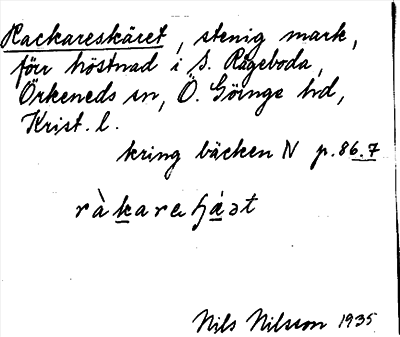 Rackareskäret, stenig mark,
förr höstnad i S. Rågeboda,
Örkeneds sn, Ö. Göinge hd,
Krist. l.
kring bäcken N p. 86.7
ràkare
Nils Nilsson 1935